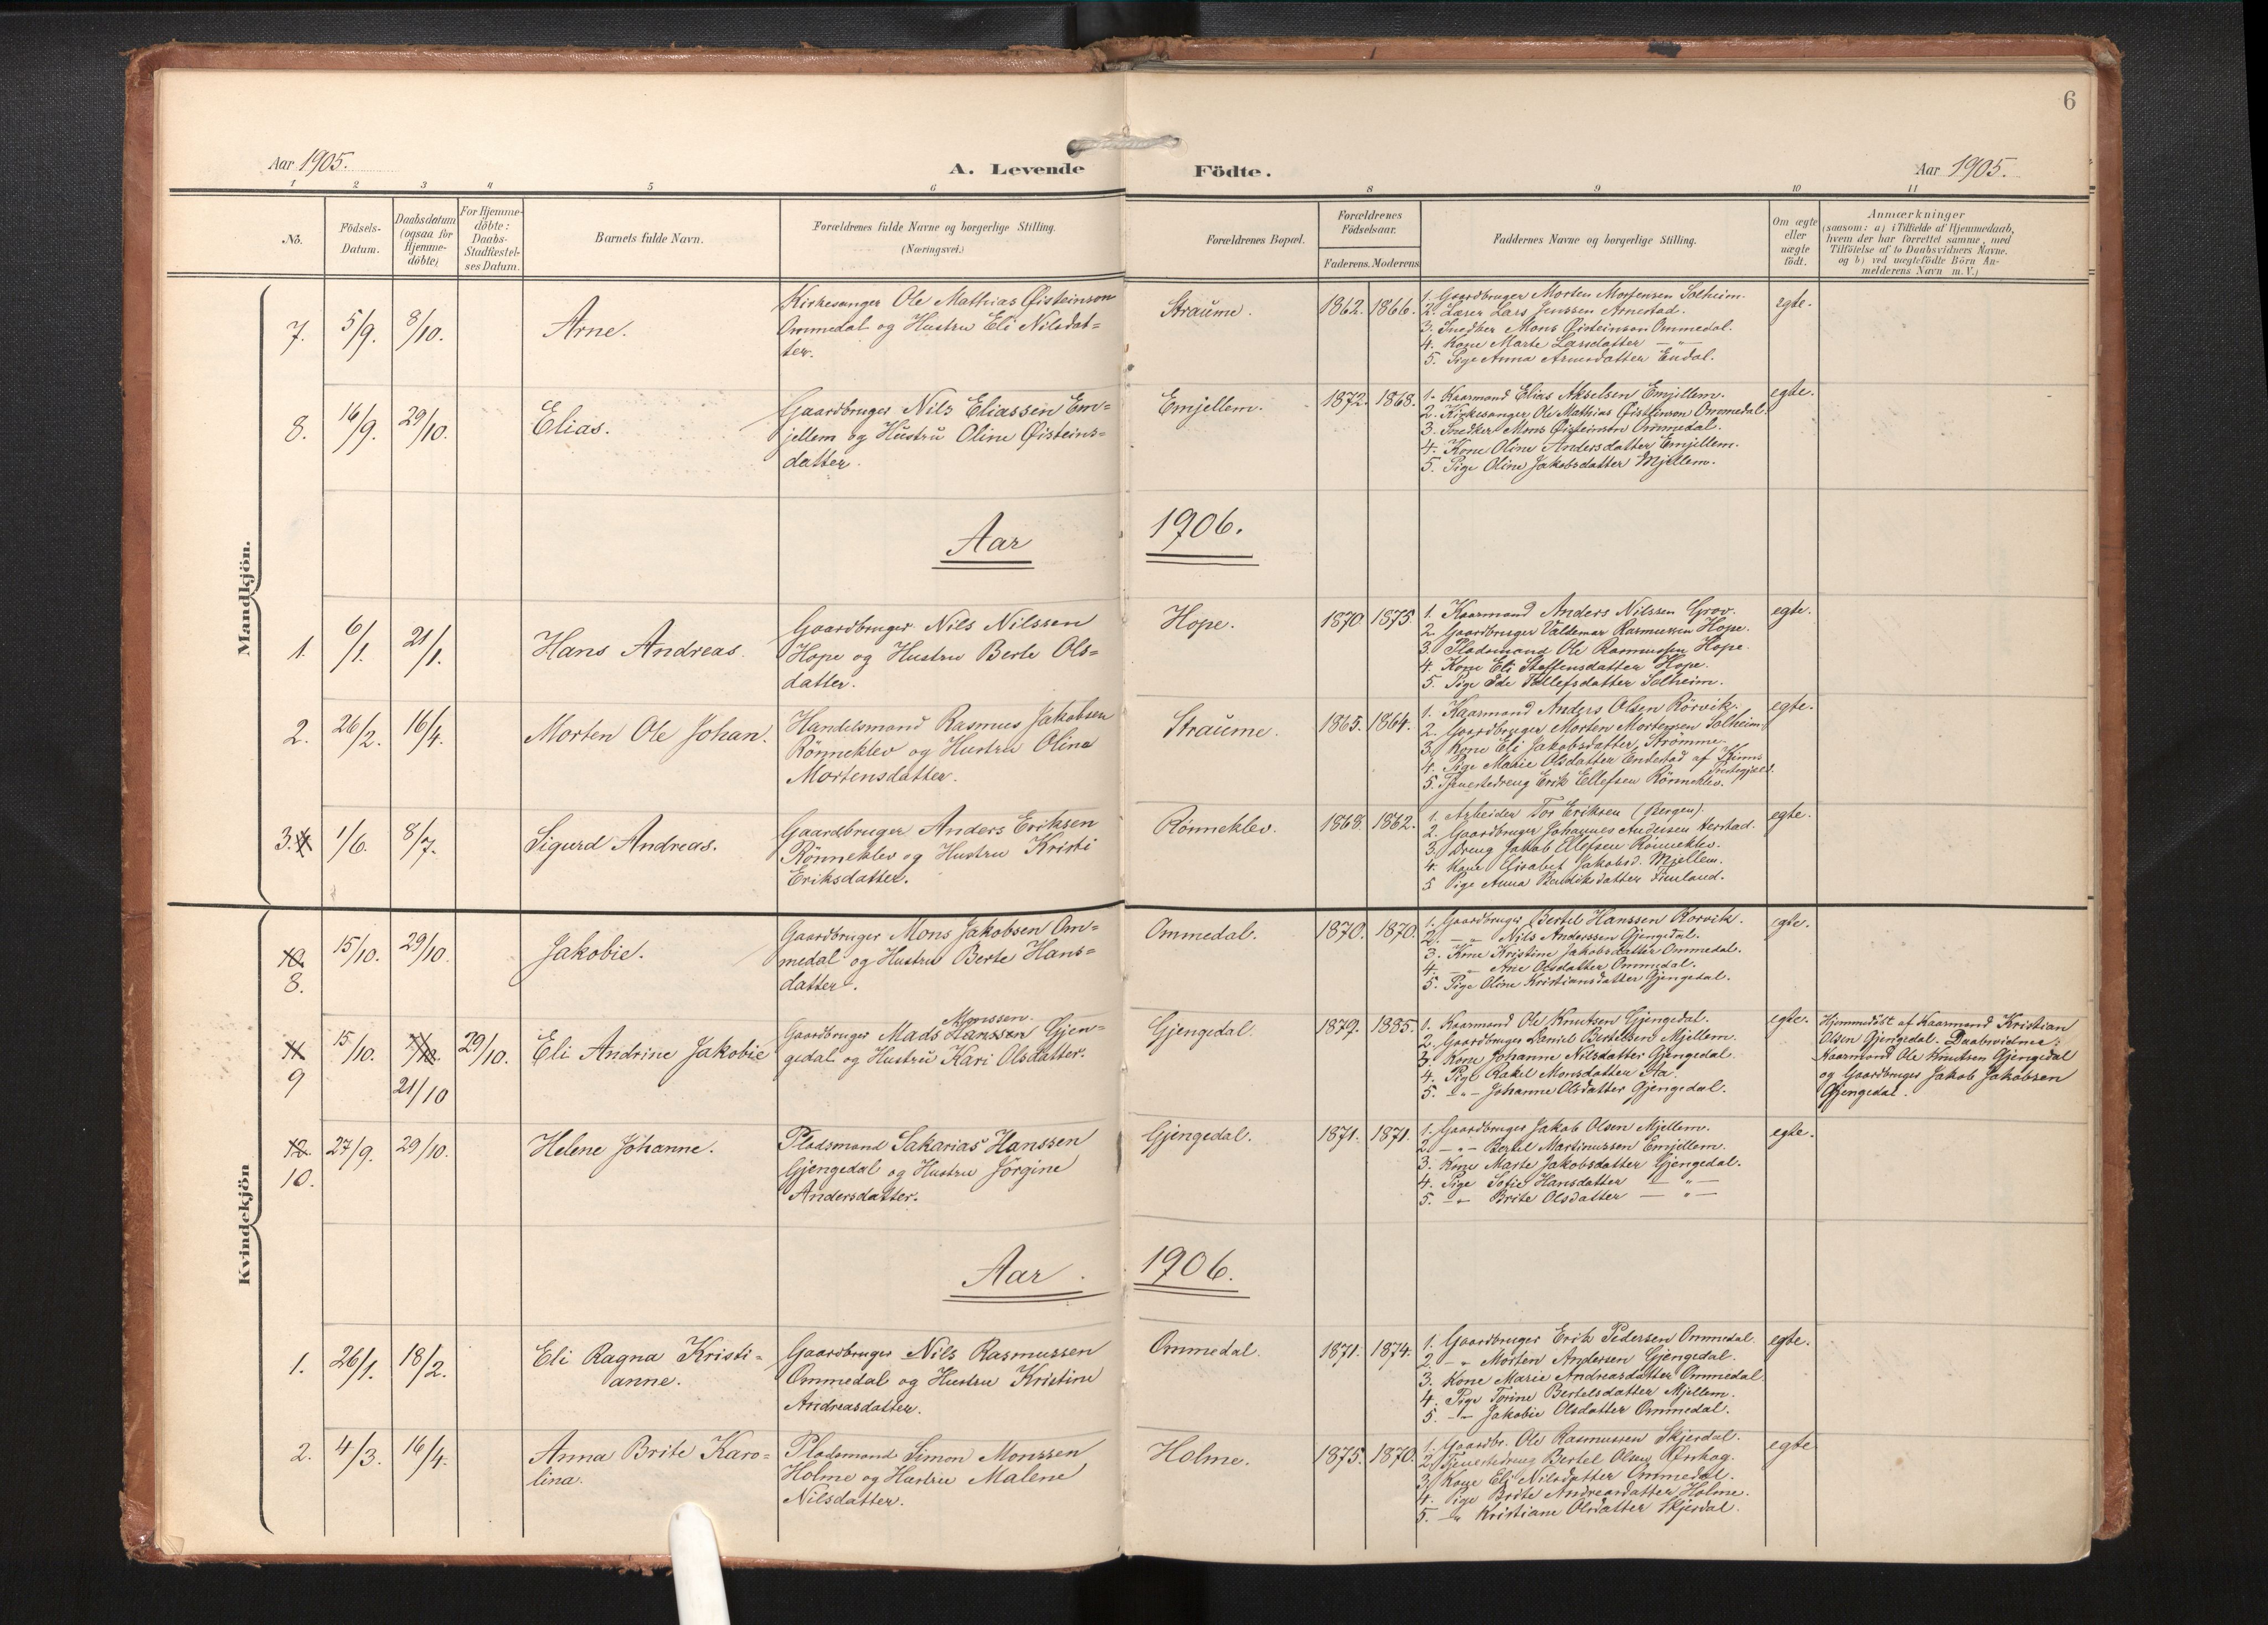 6
Aar 1905.
A. Levende Födte.
Aar 1905.
1 2 3 4 5 6 8 9 10 11
No.
Födsels-
Datum.
Daabsdatum
(ogsaa for
Hjemme-
döbte)
For Hjemme-
döbte:
Daabs-
Stadfæstel-
ses Datum.
Barnets fulde Navn.
Forældrenes fulde Navne og borgerlige Stilling.
(Næringsvei.)
Forældrenes Bopæl.
Forældrenes
Födselsaar.
Faderens. Moderens
Faddernes Navne og borgerlige Stilling.
Om ægte
eller
uægte
födt.
Anmærkninger
(saasom: a) i Tilfælde af Hjemmedaab,
hvem der har forrettet samme, med
Tilföielse af to Daabsvidners Navne.
og b) ved uægtefödte Börn An-
melderens Navn m. V.)
Mandkjön.
7. 5/9. 8/10. Arne.
Kirkesanger Ole Mathias Øisteinson
Ommedal og Hustru Eli Nilsdat=
ter.
Straume. 1862. 1866.
1. Gaardbruger Morten Mortensen Solheim.
2. Lærer Lars Jenssen Arnestad.
3. Snedker Mons Øisteinson Ommedal.
4. Kone Marte Larsdatter — " —
5. Pige Anna Arnesdatter Endal.
egte.
8. 16/9. 29/10. Elias.
Gaardbruger Nils Eliassen Em=
jellem og Hustru Oline Øisteins=
datter.
Emjellem. 1872. 1868.
1. Kaarmand Elias Akselsen Emjellem.
2. Kirkesanger Ole Mathias Øisteinson Ommedal.
3. Snedker Mons Øisteinson Ommedal.
4. Kone Oline Andersdatter Emjellem.
5. Pige Oline Jakobsdatter Mjellem.
egte.
Aar 1906.
1. 6/1. 21/1. Hans Andreas.
Gaardbruger Nils Nilssen
Hope og Hustru Berte Ols=
datter.
Hope. 1870. 1875.
1. Kaarmand Anders Nilssen Grov.
2. Gaardbruger Valdemar Rasmussen Hope.
3. Pladsmand Ole Rasmussen Hope.
4. Kone Eli Steffensdatter Hope.
5. Pige Ide Tollefsdatter Solheim.
egte.
2. 26/2. 16/4. Morten Ole Johan.
Handelsmand Rasmus Jakobsen
Rönneklev og Hustru Oline
Mortensdatter.
Straume. 1865. 1864.
1. Kaarmand Anders Olsen Rörvik.
2. Gaardbruger Morten Mortensen Solheim.
3. Kone Eli Jakobsdatter Strömme.
4. Pige Marie Olsdatter Endestad af Kinns
Prestegjæld.
5. Tjenestedreng Erik Ellefsen Rönneklev.
egte.
3. 4. 1/6. 8/7. Sigurd Andreas.
Gaardbruger Anders Eriksen
Rönneklev og Hustru Kristi
Eriksdatter.
Rönneklev. 1868. 1862.
1. Arbeider Tor Eriksen (Bergen).
2. Gaardbruger Johannes Andersen Herstad.
3. Dreng Jakob Ellefsen Rönneklev.
4. Kone Elisabet Jakobsd. Mjellem.
5 Pige Anna Bendiksdatter
egte.
Kvindekjön
10. 8. 15/10. 29/10. Jakobie.
Gaardbruger Mons Jakobsen Om=
medal og Hustru Berte Hans=
datter.
Ommedal. 1870. 1870.
1. Gaardbruger Bertel Hanssen Rorvik.
2. — " — Nils Anderssen Gjengedal.
3. Kone Kristine Jakobsdatter Ommedal.
4. — " — Ane Olsdatter Ommedal.
5. Pige Oline Kristiansdatter Gjengedal.
egte.
11 9 15/10. 21/10 29/10. Eli Andrine Jakobie
Monssen.
Gaardbruger Mads Hanssen Gjen=
gedal og Hustru Kari Olsdatter.
Gjengedal. 1879. 1885.
1. Kaarmand Ole Knutsen Gjengedal.
2. Gaardbruger Daniel Bertelsen Mjellem.
3. Kone Johanne Nilsdatter Gjengedal.
4. Pige Rakel Monsdatter Aa.
5. — " — Johanne Olsdatter Gjengedal.
egte.
Hjemmedöbt af Kaarmand Kristian
Olsen Gjengedal. Daabsvidner:
Kaarmand Ole Knutsen Gjengedal
og Gaardbruger Jakob Jakobsen
Gjengedal.
12. 10. 27/9. 29/10. Helene Johanne.
Pladsmand Sakarias Hanssen
Gjengedal og Hustru Jörgine
Andersdatter.
Gjengedal. 1871. 1871.
1. Gaardbruger Jakob Olsen Mjellem.
2. — " — Bertel Martinussen Emjellem.
3. Kone Marte Jakobsdatter Gjengedal.
4. Pige Sofie Hansdatter — " —
5. — " — Brite Olsdatter — " —
egte.
Aar 1906.
1. 26/1. 18/2. Eli Ragna Kristi=
anne.
Gaardbruger Nils Rasmussen
Ommedal og Hustru Kristine
Andreasdatter.
Ommedal. 1871. 1874.
1. Gaardbruger Erik Pedersen Ommedal.
2. — " — Morten Andersen Gjengedal.
3. Kone Marie Andreasdatter Ommedal.
4. Pige Torine Bertelsdatter Mjellem.
5. — " — Jakobie Olsdatter Ommedal.
egte.
2. 4/3. 16/4. Anna Brite Karo=
lina.
Pladsmand Simon Monssen
Holme og Hustru Malene
Nilsdatter.
Holme. 1875. 1870.
1. Gaardbr. Ole Rasmussen Skjerdal.
2. Tjenestedreng Bertel Olsen
3. Kone Eli Nilsdatter Ommedal.
4. Pige Brite Andreasdatter Holme.
5. — " — Kristiane Olsdatter Skjerdal.
egte